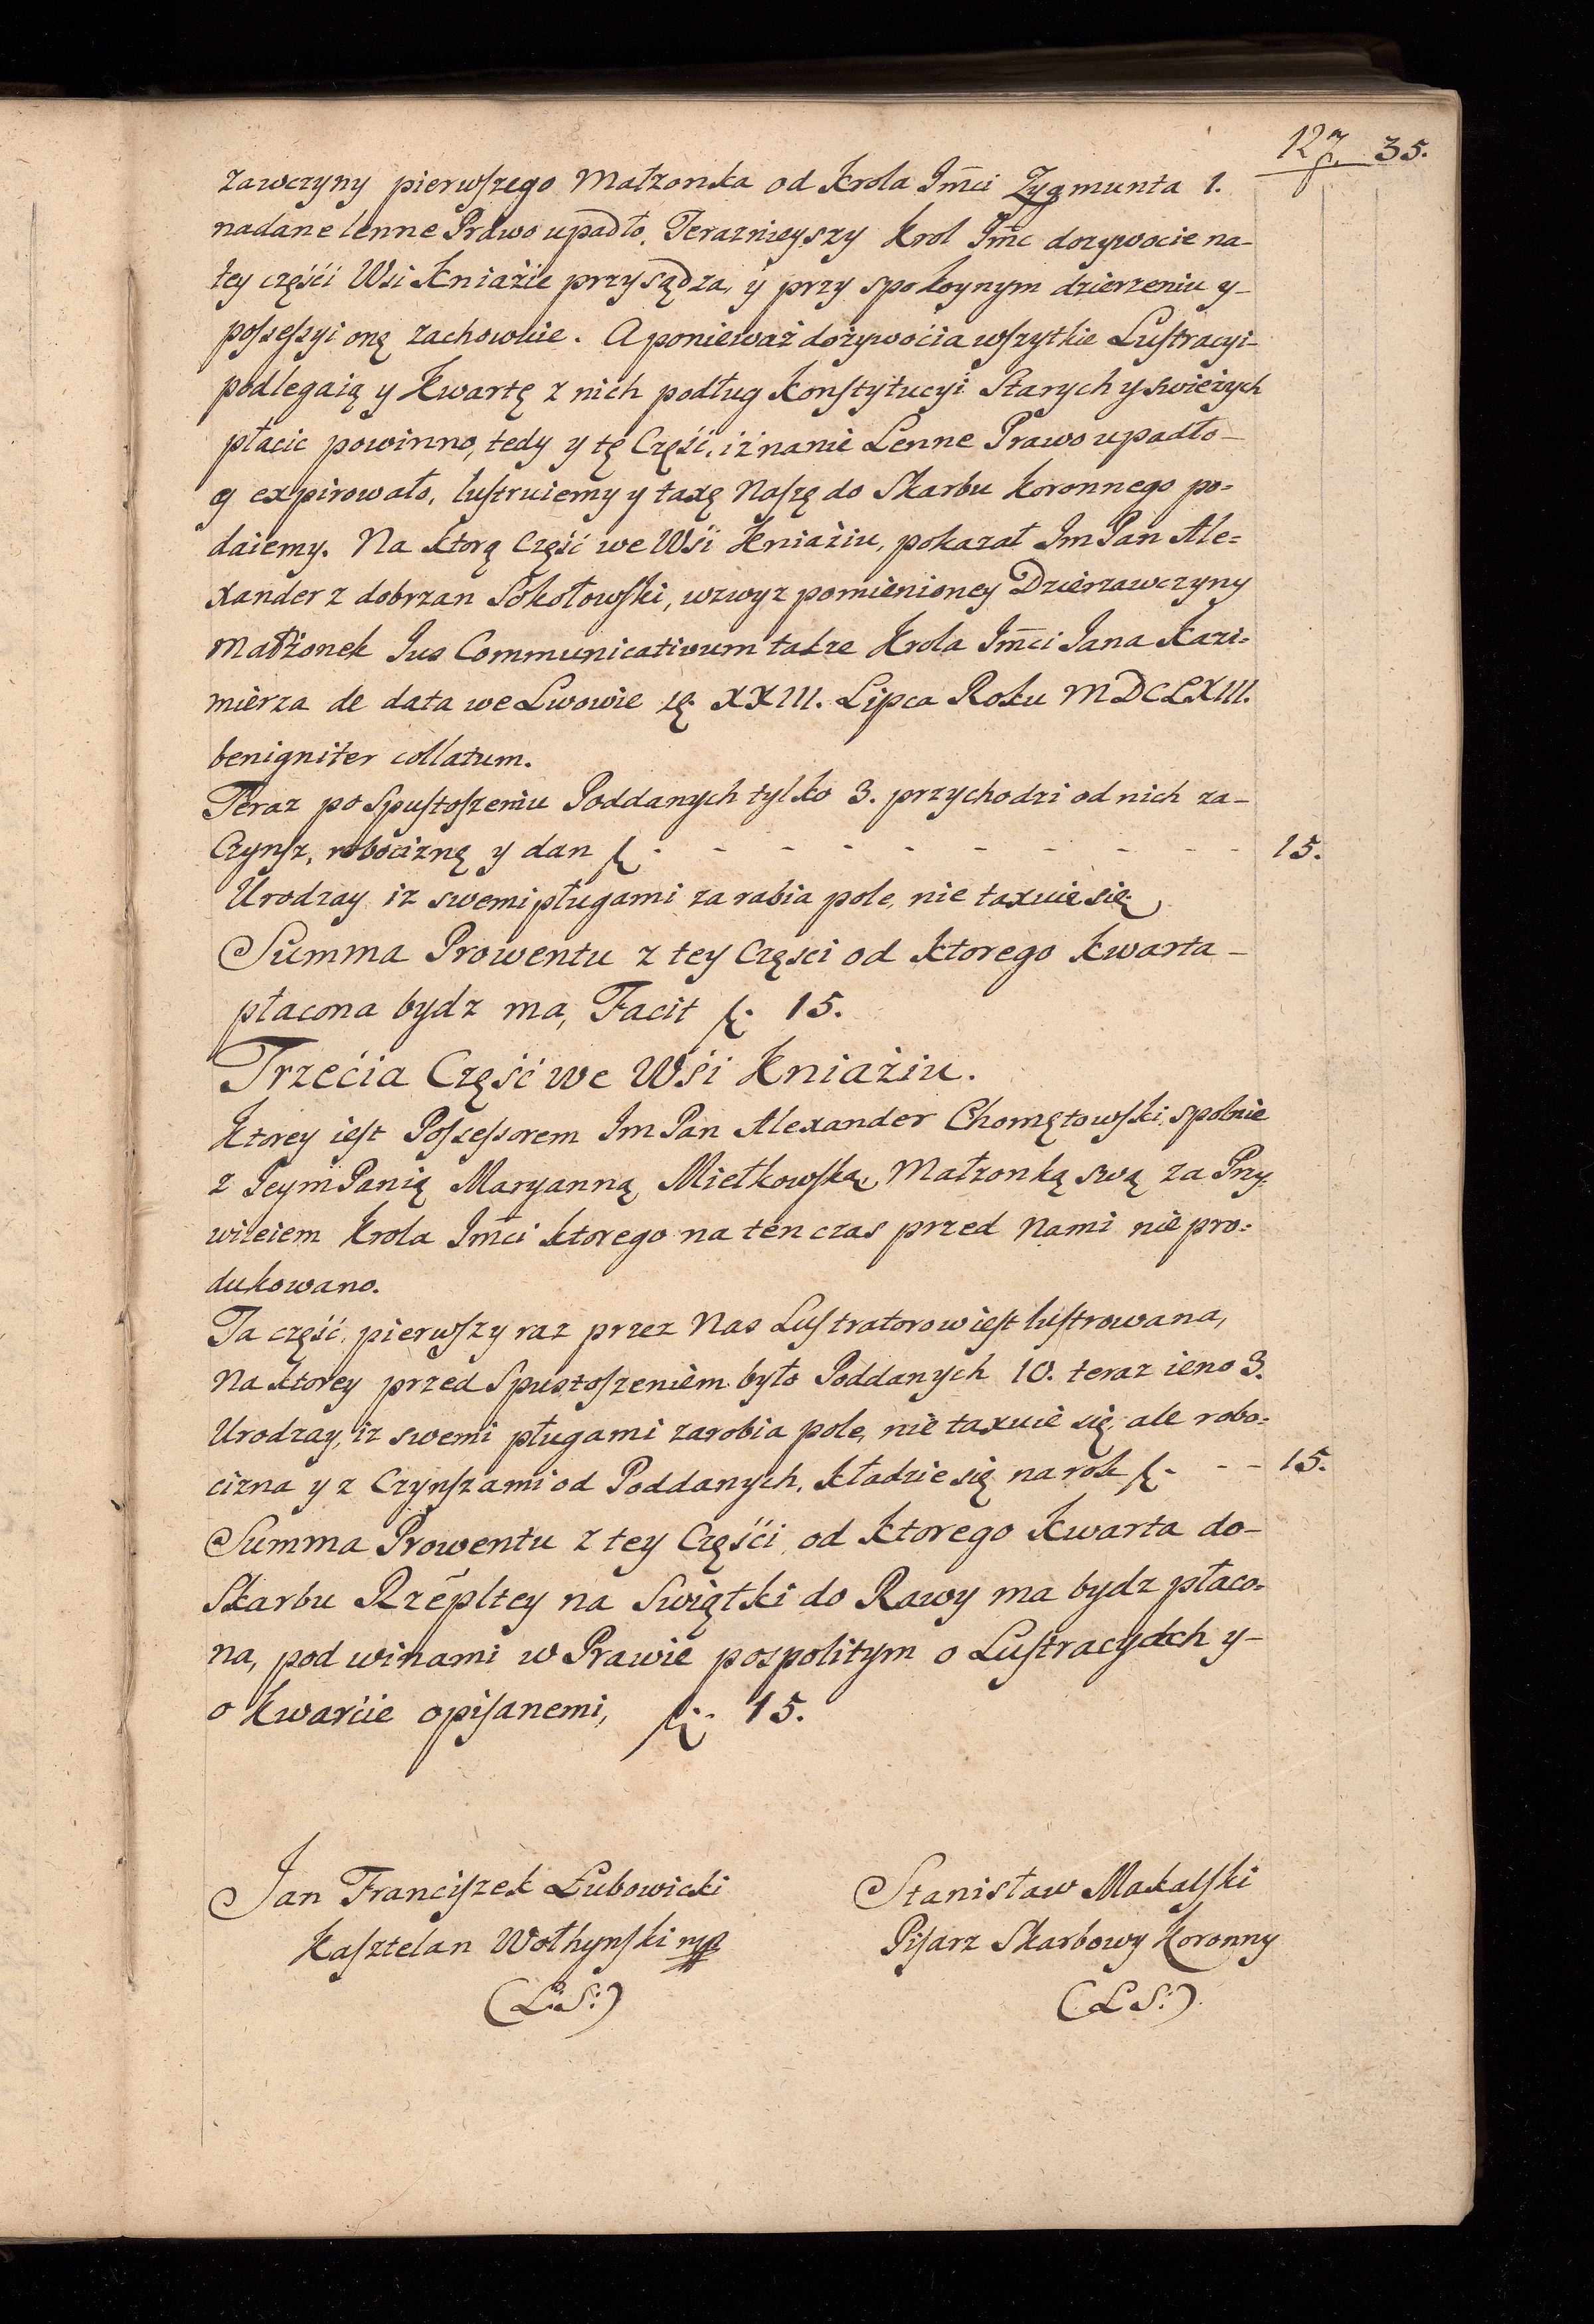 127. 35.
zawczyny pierwszego Małzonka od Krola Jm̃ci Zygmunta 1.
nadane lenne Prawo upadło, Teraznieyszy Krol Jm̃c dozywocie na-
tey częśći Wsi Kniaźie przysądza, y przy spokoynym dzierzeniu y-
possessyi onę zachowuie. A ponieważ dożywoćia wszytkie Lustracyi-
podlegaią y Kwartę z nich podług Konstytucyi Starych y swieżych
płacic powinno, tedy y tę Część, iż nanie Lenne Prawo upadło-
y expirowało, lustruiemy y taxę Naszę do Skarbu Koronnego po=
daiemy. Na ktorą Część we Wśi Kniaźiu, pokazał Im Pan Ale=
xander z dobrzan Sokołowski, wzwyz pomienioney Dzierzawczyny
Małżonek Jus Communicativum także Krola Jm̃ci Jana Kazi=
mierza de data we Lwowie XXIII. Lipca Roku MDCLXIII.
benigniter collatum.
Teraz po Spustoszeniu Poddanych tylko 3. przychodzi od nich za-
Czynsz, robociznę y dan f. - - - - - - - - - - 15.
Urodzay iz swemi pługami zarabia pole, nie taxuie się.
Summa Prowentu z tey Częsci od ktorego Kwarta-
płacona bydz ma, Facit f. 15.
Trzećia Część we Wśi Kniaźiu.
Ktorey iest Possessorem Im Pan Alexander Chomętowski, spolnie
z Jeym Panią Maryanną Miełkowską, Małzonką swą za Przy-
wileiem Krola Jm̃ci ktorego na ten czas przed Nami nie pro=
dukowano.
Ta część, pierwszy raz przez Nas Lustratorow iest lustrowana,
Na ktorey przed Spustoszeniem było Poddanych 10. teraz ieno 3.
Urodzay, iz swemi pługami zarobia pole, nie taxuie się, ale robo=
cizna y z Czynszami od Poddanych, kładzie się na rok f. - - - 15.
Summa Prowentu z tey Częśći, od ktorego Kwarta do-
Skarbu Rzẽpltey na Swiątki do Rawy ma bydz płaco=
na, pod winami w Prawie pospolitym o Lustracyach y-
o Kwarćie opisanemi, f. 15.
Jan Franciszek Łubowicki
Kasztelan Wołhynski mp
(L:S:)
Stanisław Makalski
Pisarz Skarbowy Koronny
(L S:)